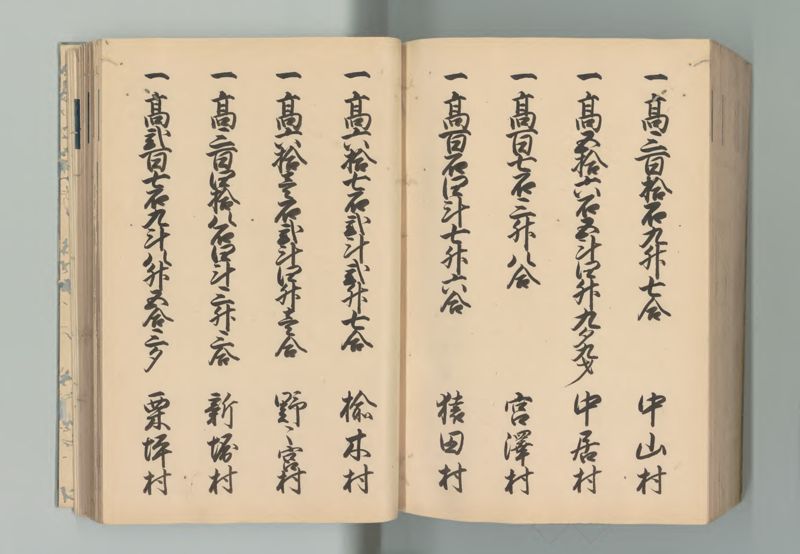 一高三百拾石九升七合 中山村
一高五拾六石五斗四升九夕九才 中居村
一高百七石三升八合 宮澤村
一高百石四斗七升六合 猿田村
一高六拾七石弐斗弐升七合 楡木村
一高六拾壱石弐斗四升壱合 野々宮村
一高三百四拾八石四斗三升三合 新堀村
一高弐百七石九斗八升五合三夕 栗坪村